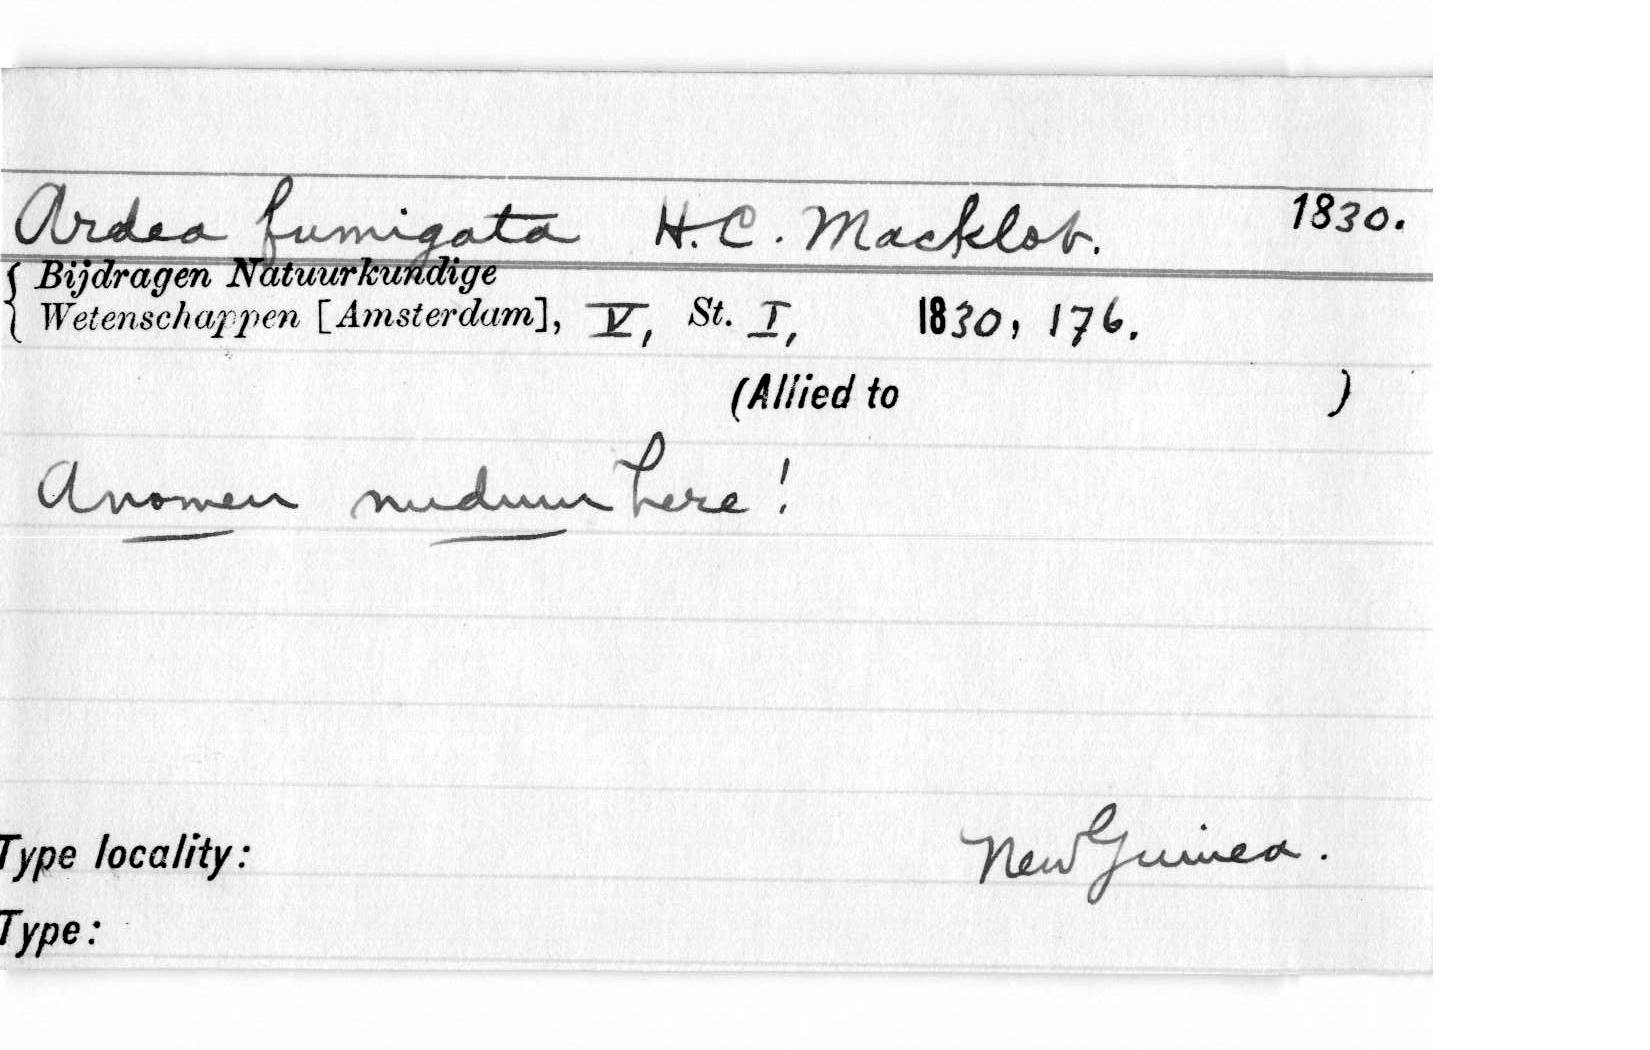 Ardea fumigata H. C. Macklot. 1830.
{ Bijdragen Natuurkundige
Wetenschappen [Amsterdam], V, St. I, 1830, 176.
(Allied to )
A nomen nudum here!
Type locality: New Guinea.
Type: